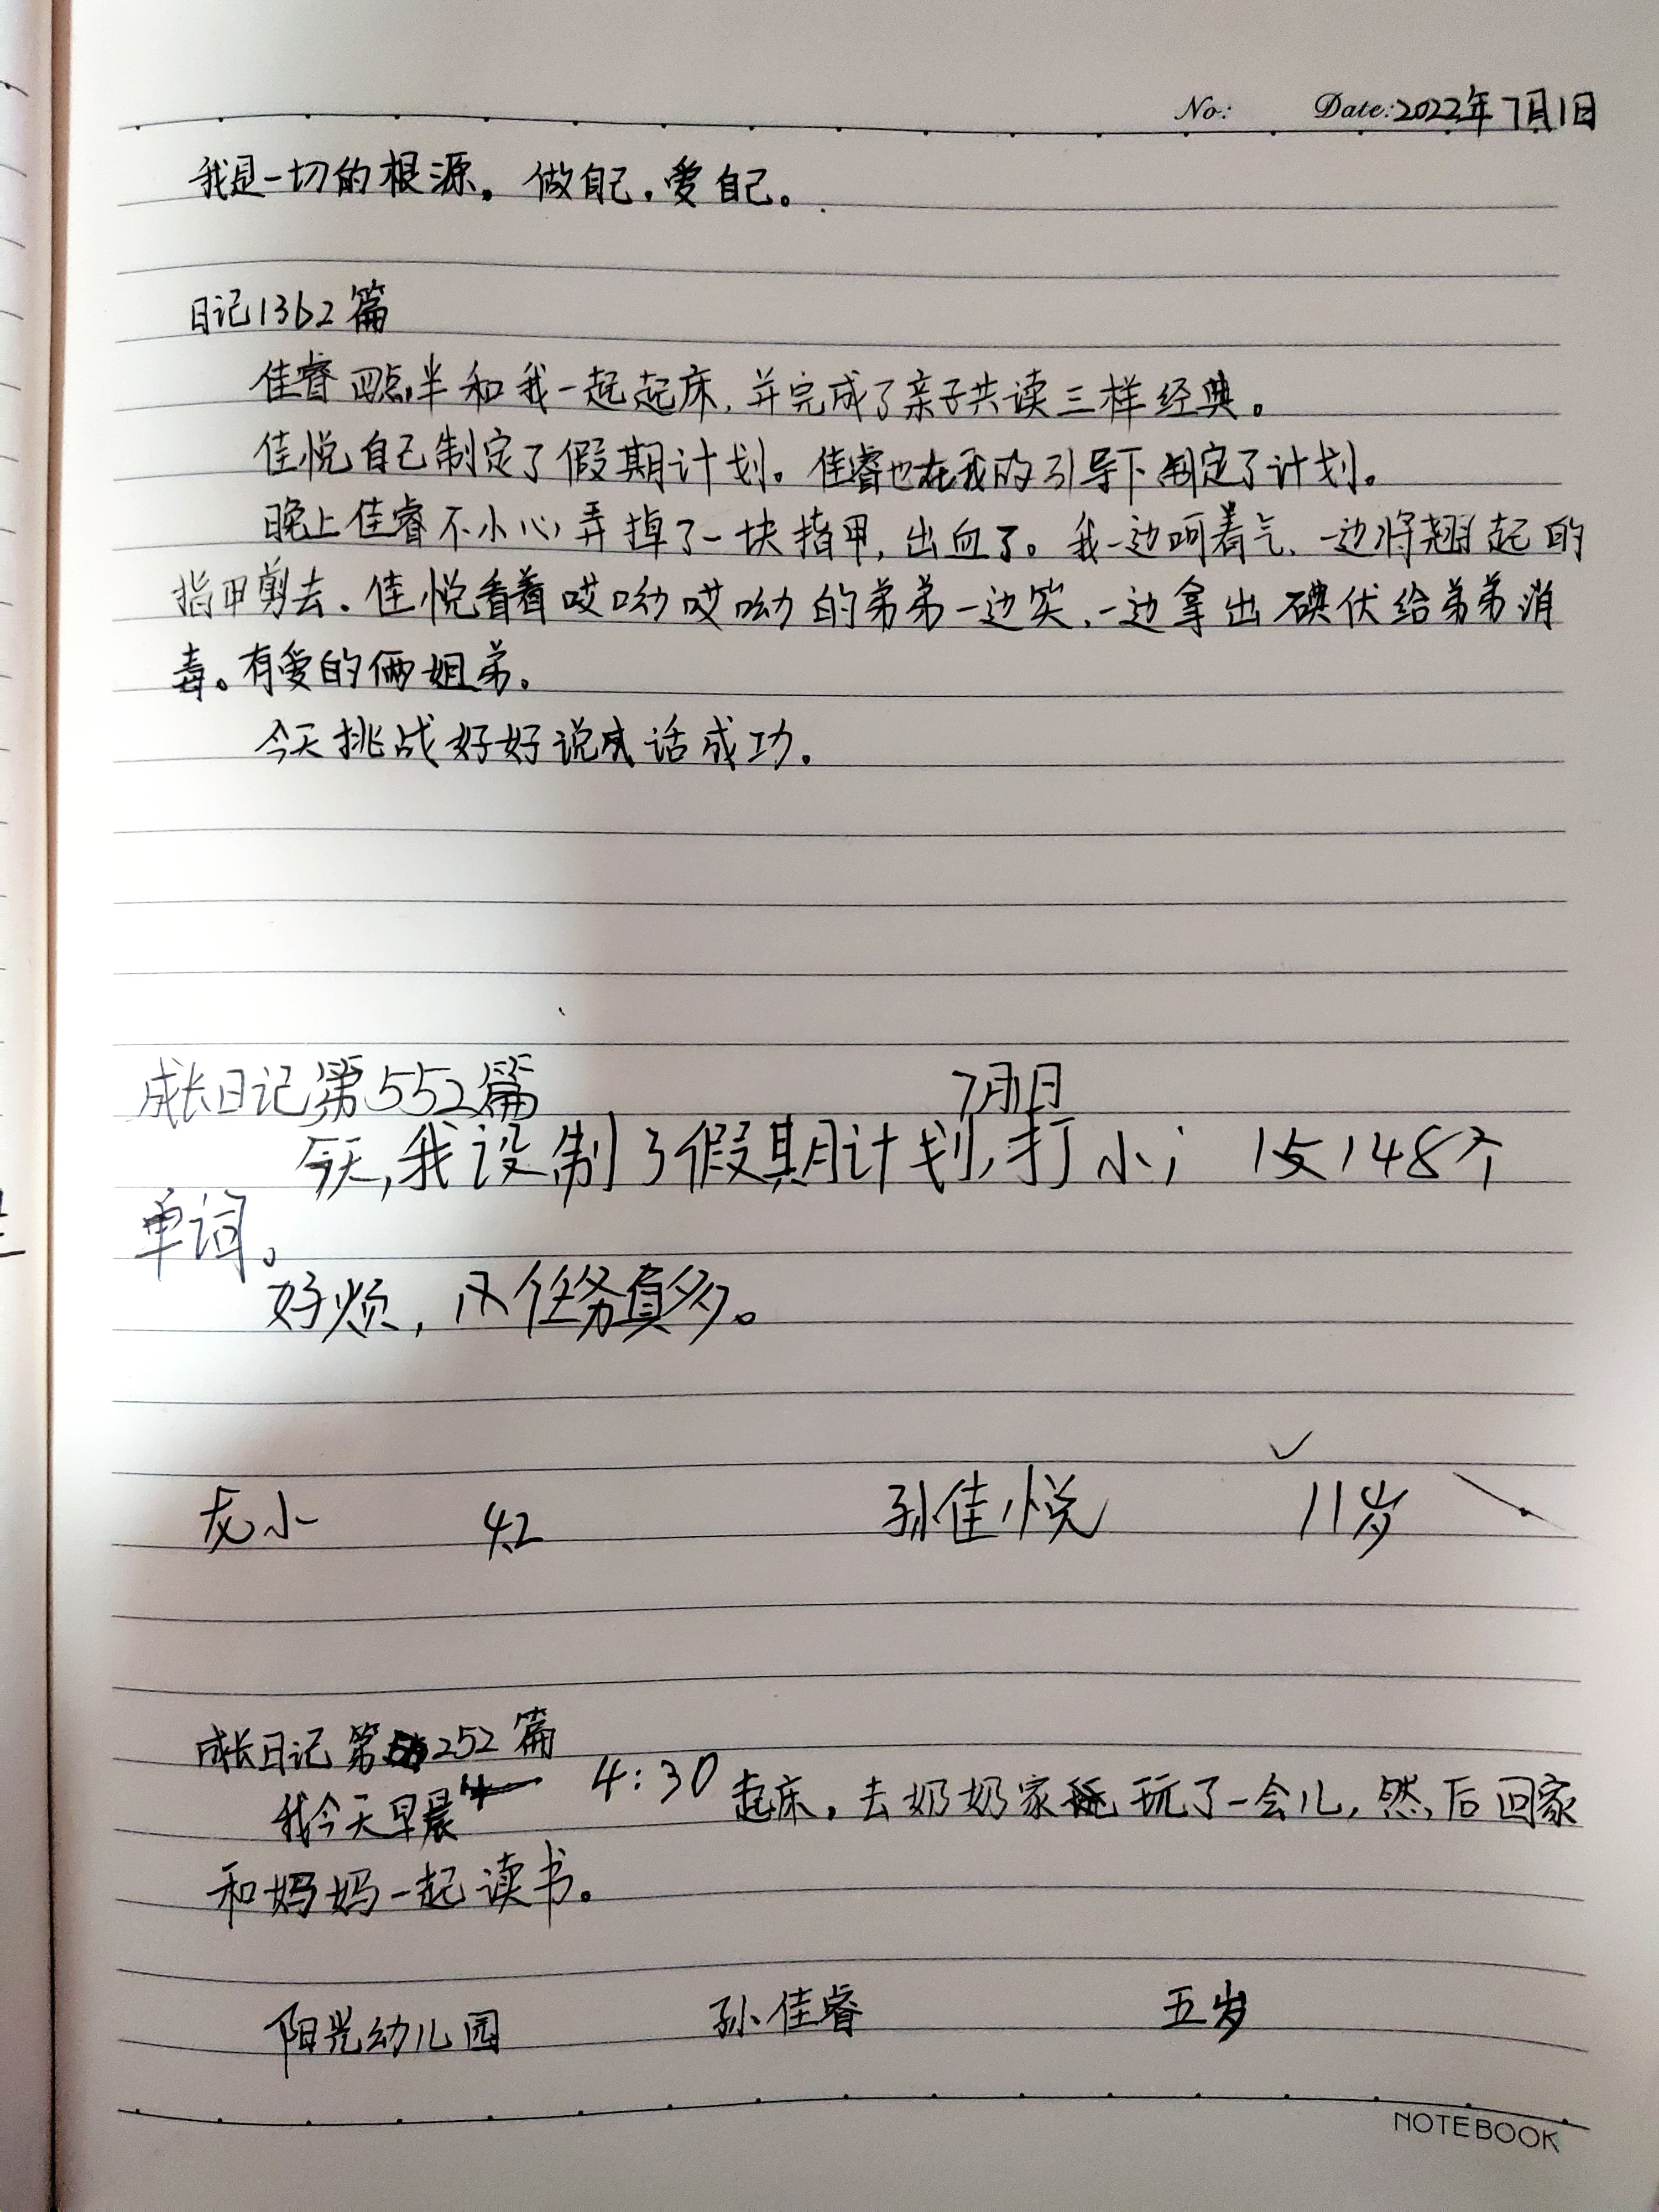 No: Date: 2022年7月1日
我是一切的根源。做自己,爱自己。
日记1362篇
佳睿四点半和我一起起床,并完成了亲子共读三样经典。
佳悦自己制定了假期计划。佳睿也在我的引导下制定了计划。
晚上佳睿不小心弄掉了一块指甲,出血了。我一边呵着气、一边将翘起的
指甲剪去。佳悦看着哎呦哎呦的弟弟一边笑,一边拿出碘伏给弟弟消
毒。有爱的俩姐弟。
今天挑战好好说话成功。
成长日记第552篇 7月1日
今天,我设制了假期计划,打小 148个
单词。
好烦, 任务真多。
龙小 4.2 孙佳悦 11岁
成长日记第252篇
我今天早晨 4:30 起床,去奶奶家玩了一会儿,然后回家
和妈妈一起读书。
阳光幼儿园 孙佳睿 五岁
NOTEBOOK